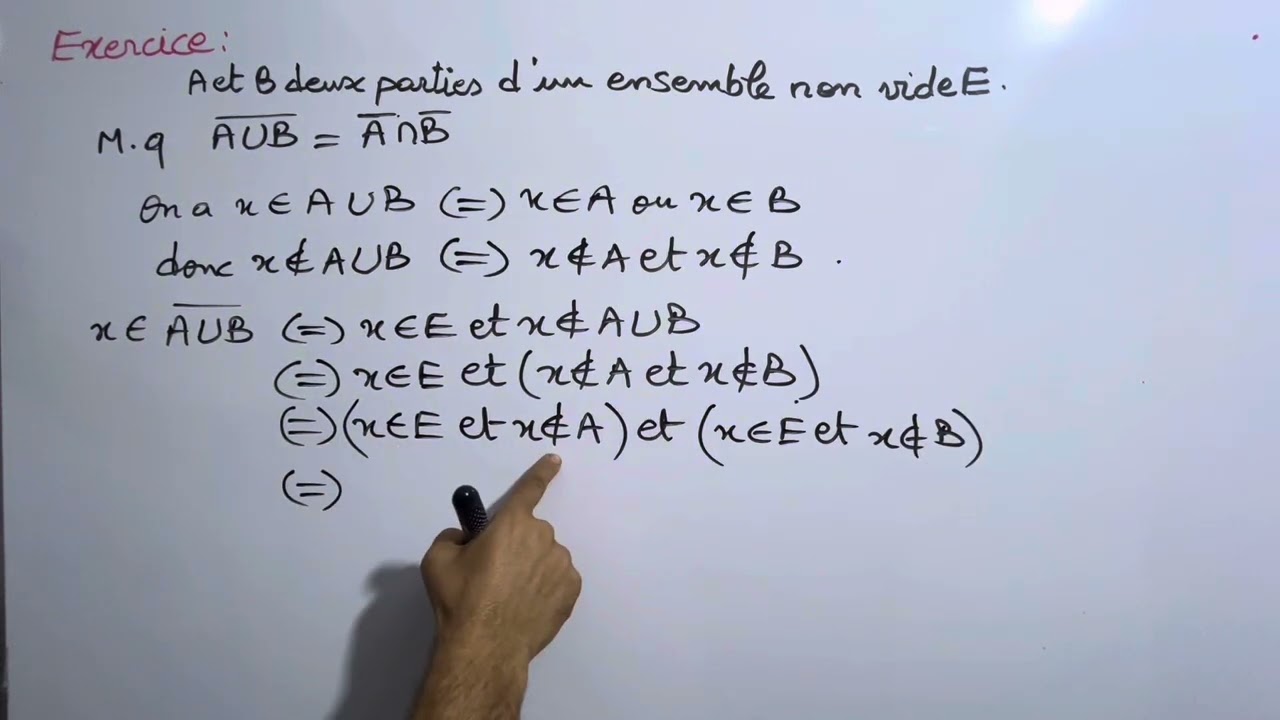 Exercice:
A et B deux parties d'un ensemble non vide E.
M.q $\overline{A∪B} = \overline{A}∩\overline{B}$
On a x∈A∪B (=) x∈A ou x∈B
donc x∉A∪B (=) x∉A et x∉B.
x∈ $\overline{A∪B}$ (=) x∈E et x∉A∪B
(=) x∈E et (x∉A et x∉B)
(=) (x∈E et x∉A) et (x∈E et x∉B)
(=)